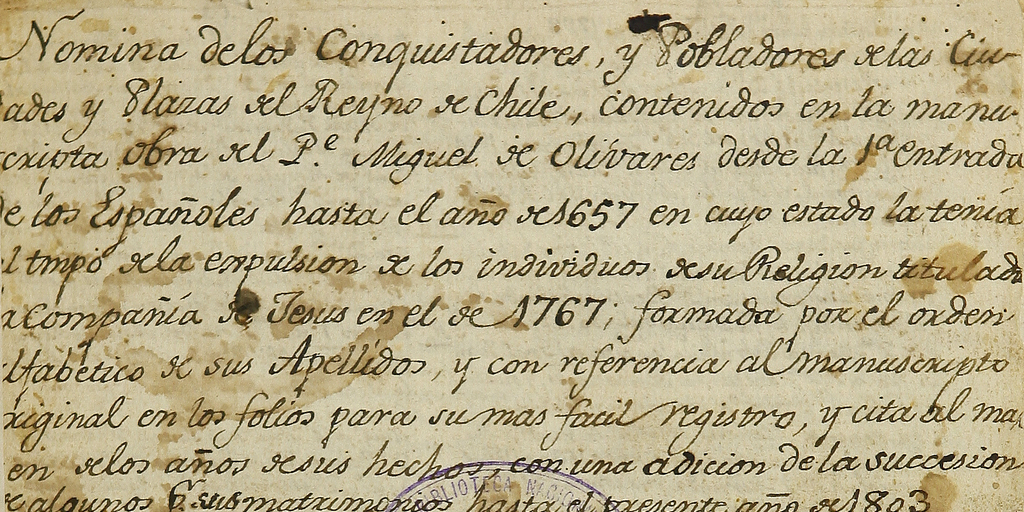 Nomina de los Conquistadores, y Pobladores de las Ciu-
ades y Plazas del Reyno de Chile, contenidos en la manu-
cripta obra del P.e Miguel de Olivares desde la 1a entrada
de los Españoles hasta el año de 1657 en cuyo estado la tenia
l tmpo de la expulsion de los individuos de su Religion titulada
a Compañia de Jesus en el de 1767; formada por el orden
lfabetico de sus Apellidos, y con referencia al manuscripto
riginal en los folios para su mas facil registro, y cita al mar
en de los años de sus hechos, con una adicion de la succesion
de algunos sus matrimonios hasta el presente año de 1803
BIBLIOTECA NACIO